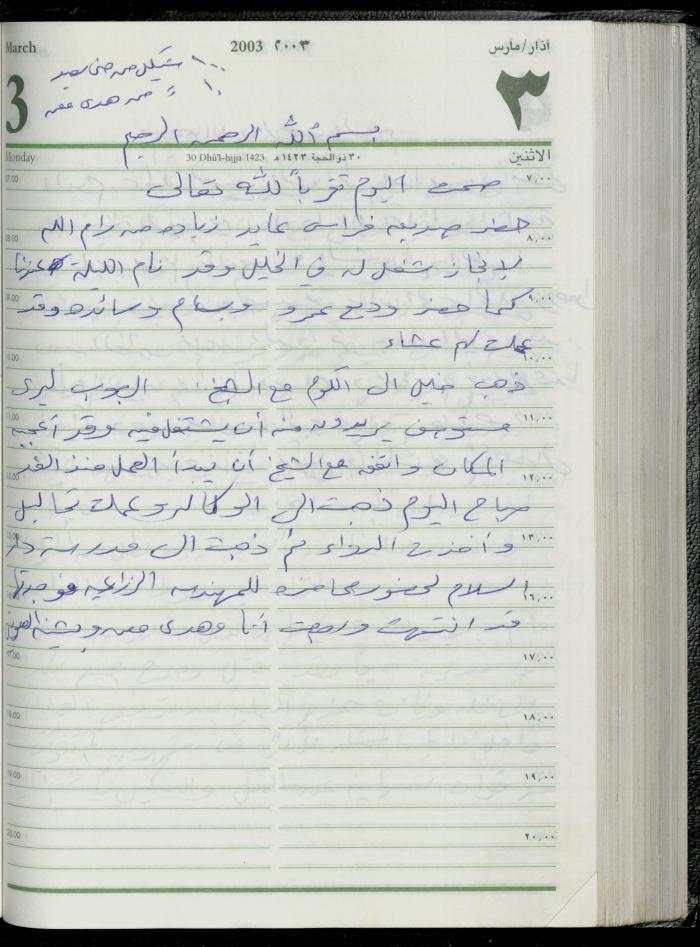 March
2003 ٢٠٠٣
آذار/مارس
3
٣
١٠٠ شيكل من
١٠ = من هدى
بسم الله الرحمن الرحيم
Monday
30 Dhû'l-hijja 1423 ٣٠ ذو الحجة ١٤٢٣ هـ
الاثنين
07.00 صمت اليوم تقرباً لله تعالى ٧,٠٠
حضر صديقه فراس عايد زياده من رام الله
08.00 ٨,٠٠
لإنجاز شغل له في الخليل وقد نام الليلة عندنا
09.00 كما حضر وديع عمرو وبسام وسائده وقد ٩,٠٠
عملت لهم عشاء
10.00 ١٠,٠٠
ذهب خليل الى الكوم مع الشيخ ليرى
11.00 مستوصف يريدونه منه أن يشتغل فيه وقد أعجبه ١١,٠٠
المكان واتفق مع الشيخ أن يبدأ العمل منذ الغد
12.00 ١٢,٠٠
صباح اليوم ذهبت الى الوكالة وعملت تحاليل
13.00 وأخذت الدواء ثم ذهبت الى مدرسة دار ١٣,٠٠
السلام لحضور محاضرة للمهندسه الزراعيه فوجدتها
١٦,٠٠
قد انتهت ورجعت أنا وهدى
17.00 ١٧,٠٠
18.00 ١٨,٠٠
19.00 ١٩,٠٠
20.00 ٢٠,٠٠